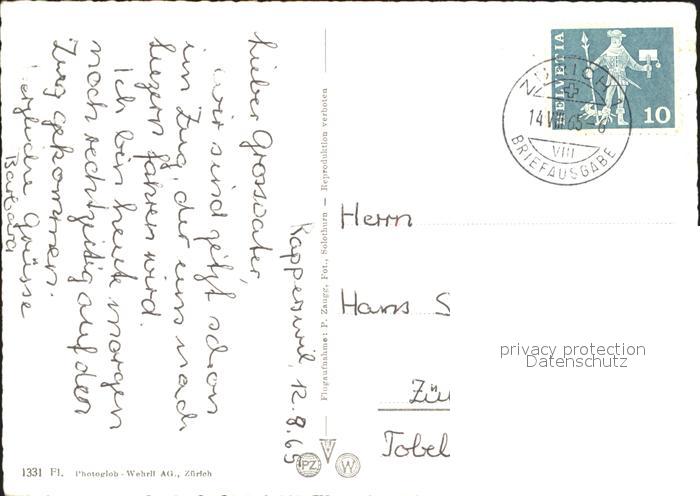 Rapperswil, 12.8.65
Lieber Grossvater,
wir sind jetzt schon
im Zug, der uns nach
Luzern fahren wird.
Ich bin heute morgen
noch rechtzeitig auf den
Zug gekommen.
Herzliche Grüsse
Barbara
Flugaufnahme: P. Zaugg, Fot., Solothurn — Reproduktion verboten
HELVETIA
10
ZÜRICH
14.VIII.65-8
VIII
BRIEFAUSGABE
Herrn
Hans S
Zü
Tobel
privacy protection
Datenschutz
PZ
W
1331 Fl. Photoglob-Wehrli AG., Zürich